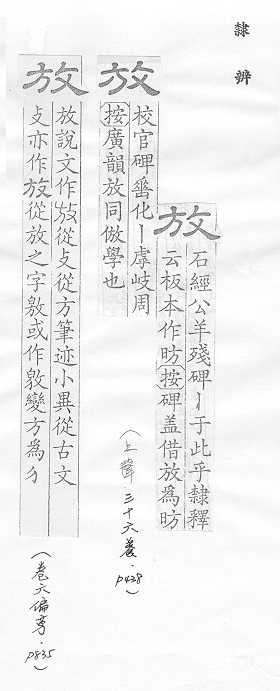 隸辨
放
石經公羊殘碑丨于此乎隸釋
云板本作昉按碑盖借放爲昉
放
校官碑畨化丨虖岐周
按廣韻放同倣學也
(上聲三十六養.p438)
放
放說文作放從攴從方筆迹小異從古文
攴亦作放從放之字敫或作敫變方為ㄌ
(卷六偏旁.p835)